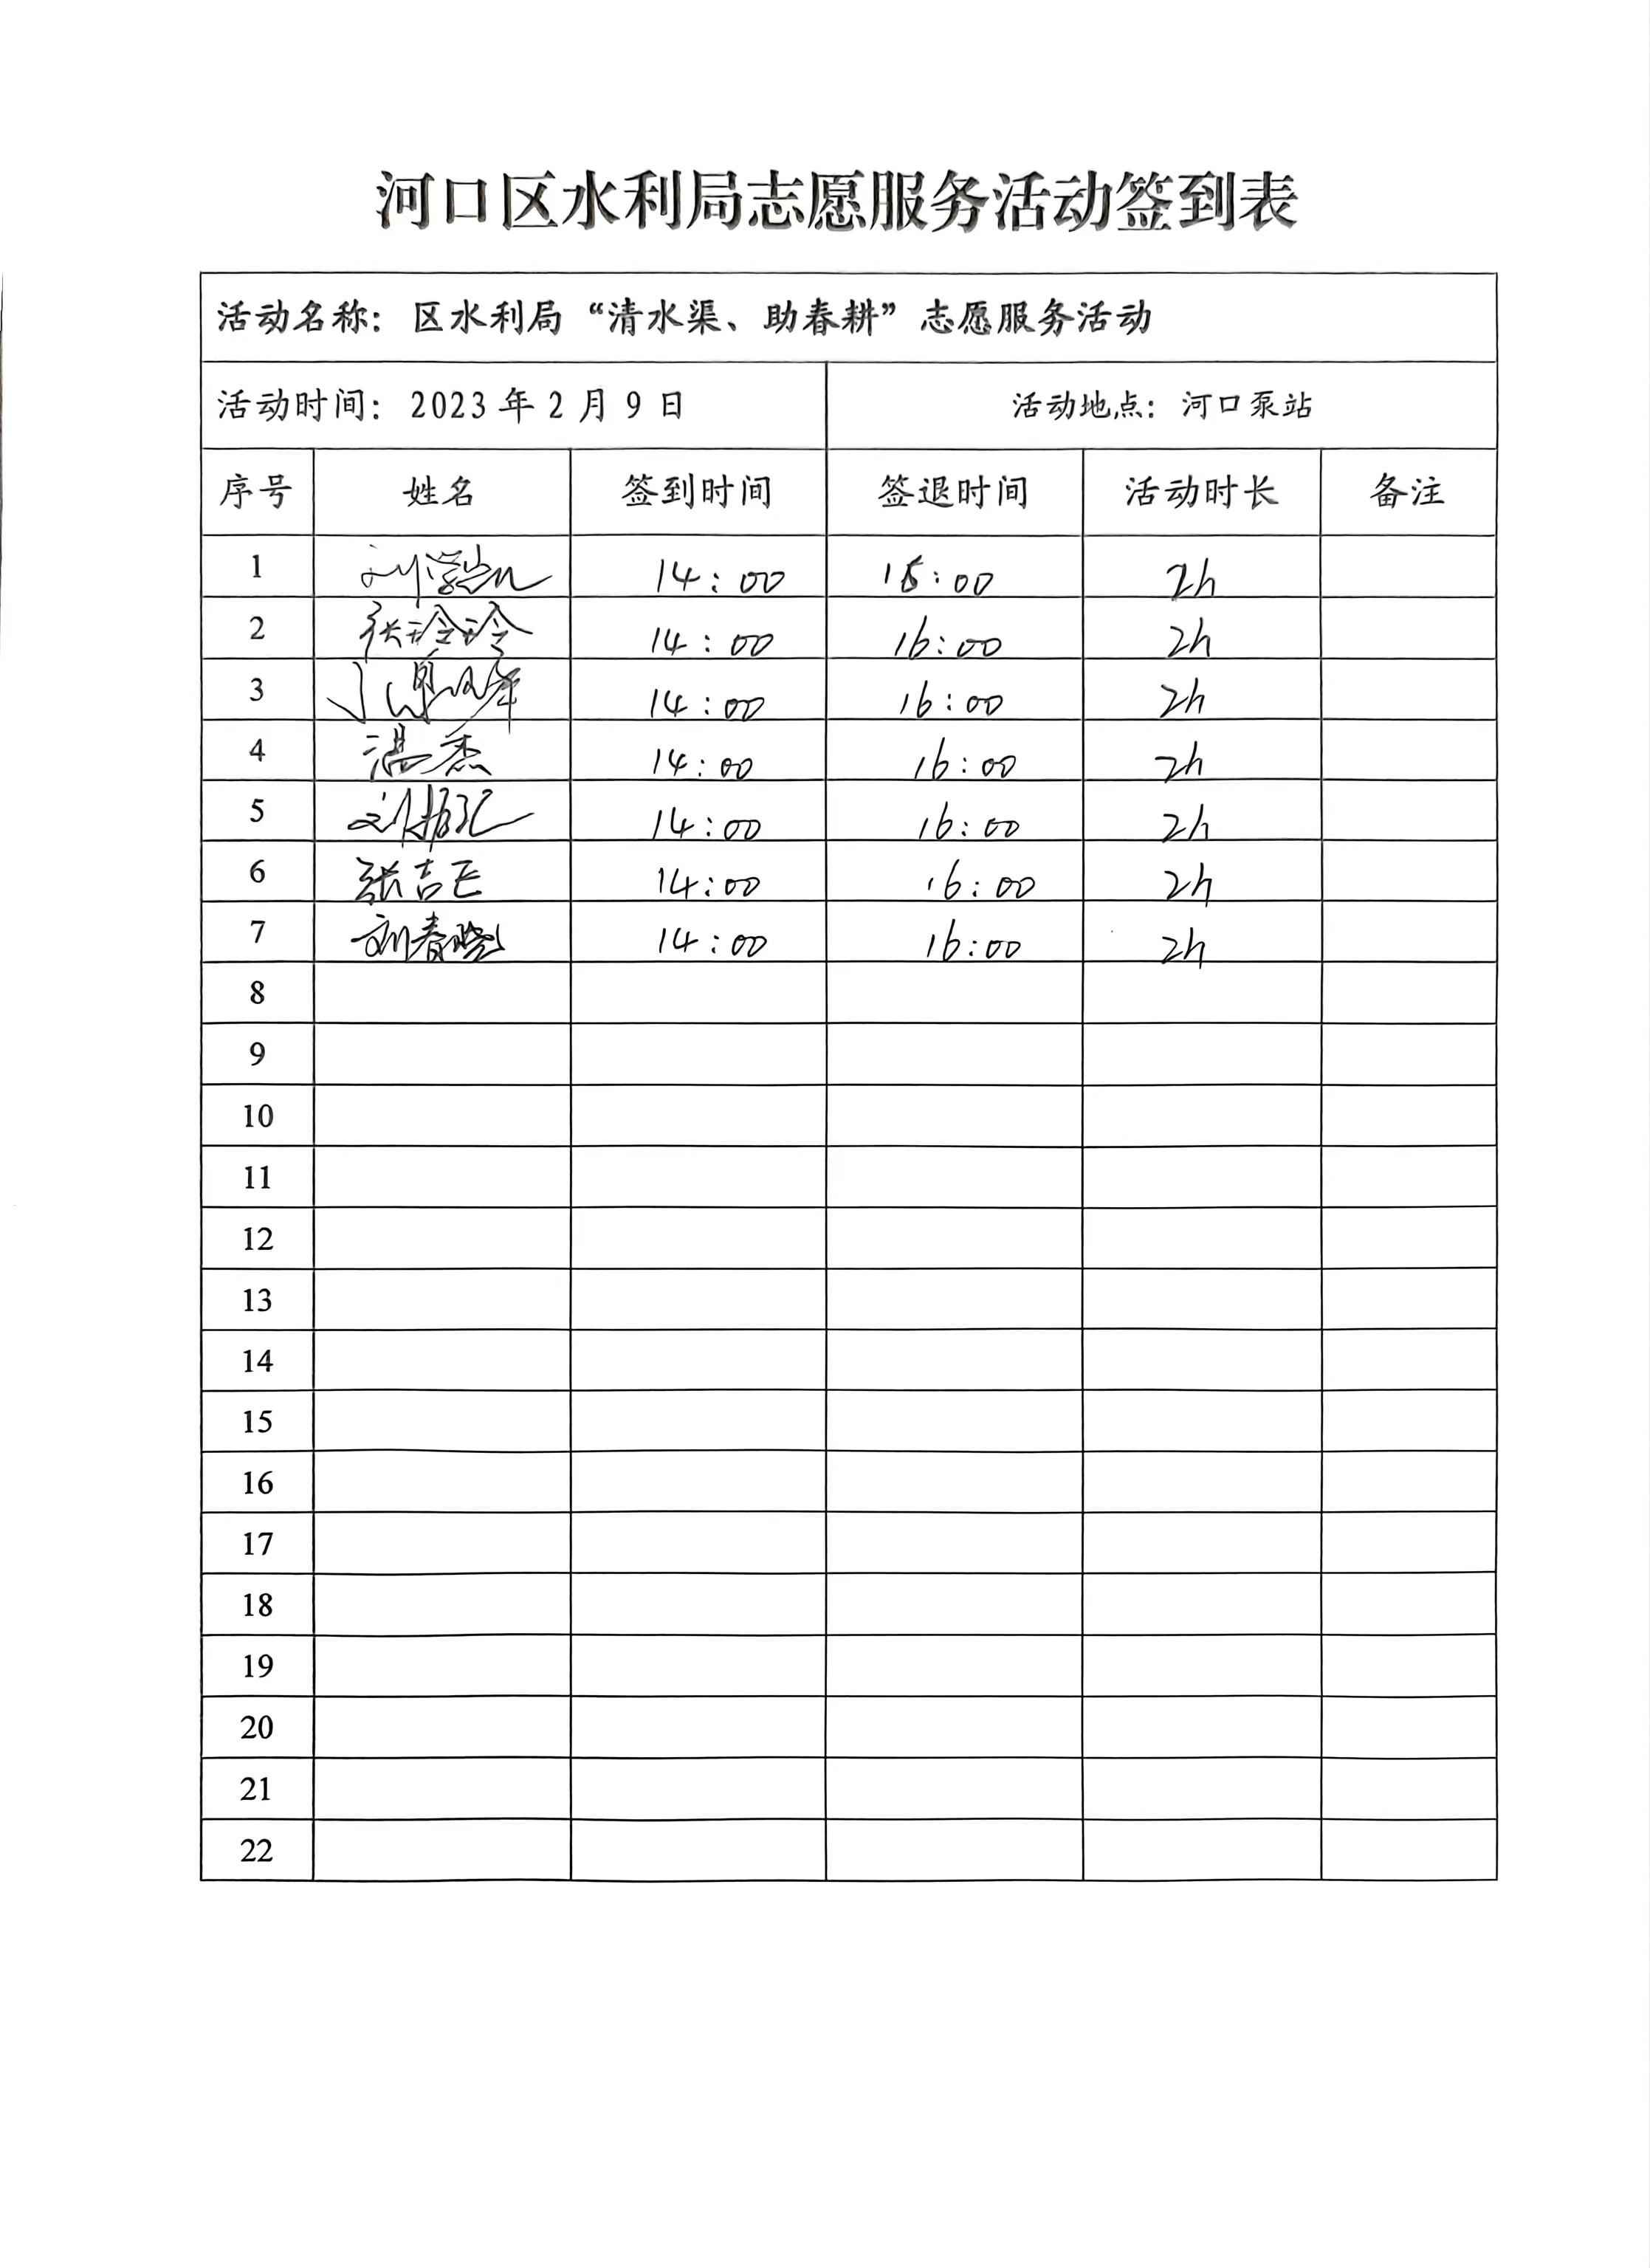 河口区水利局志愿服务活动签到表
活动名称：区水利局“清水渠、助春耕”志愿服务活动
活动时间：2023年2月9日 活动地点：河口泵站
序号 姓名 签到时间 签退时间 活动时长 备注
1 14:00 16:00 2h
2 张玲玲 14:00 16:00 2h
3 14:00 16:00 2h
4 14:00 16:00 2h
5 14:00 16:00 2h
6 张吉 14:00 16:00 2h
7 刘春晓 14:00 16:00 2h
8
9
10
11
12
13
14
15
16
17
18
19
20
21
22